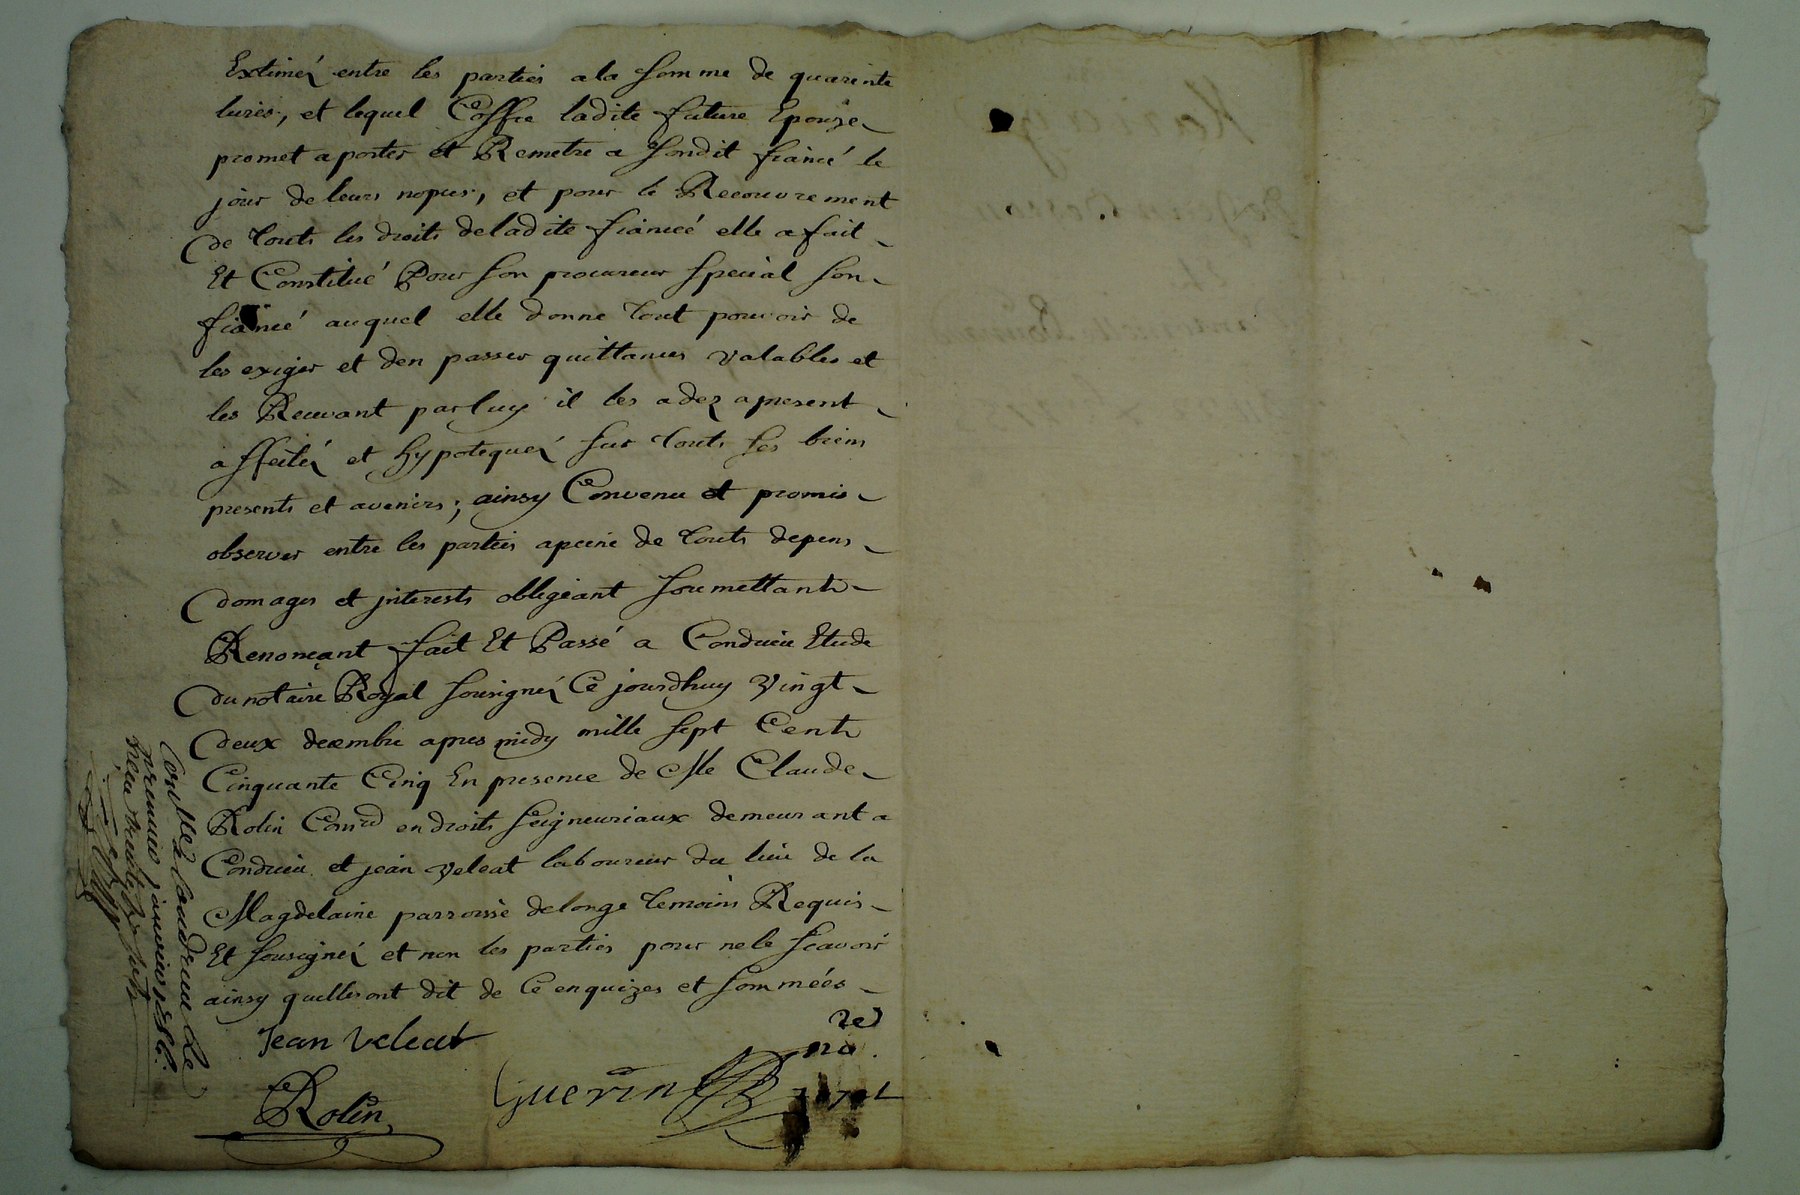 Extimé entre les parties a la somme de quarente
livres, et lequel Coffre ladite future Epouze
promet aporter et Remetre a sondit fiancé le
jour de leurs nopces, et pour le Recouvrement
de touts les droits deladite fiancéé elle a fait
Et Constitué Pour son procureur special son
fiancé auquel elle donne tout pouvoir de
les exiger et den passer quittances valables et
les Recevant par luy il les a dez apresent
affectés et hypotequés sur touts ses biens
presents et avenirs ; ainsy Convenu et promis
observer entre les parties apeine de touts depens
domages et jnterests obligéant soumettants
Renonçant fait Et Passé a Condrieu Etude
du notaire Royal sousigné Ce jourdhuy vingt
deux decembre apres midy mille sept Cents
Cinquante Cinq En presence de Me Claude
Rolin Comrd en droits seigneuriaux demeurant a
Condrieu et jean veleat laboureur du lieu de la
Magdelaine parroisse delonge temoins Requis
Et sousignés et non les parties pour ne le scavoir
ainsy quelles ont dit de Ce enquizes et sommées
Jean veleat
Rolin
Guerin
no.
Conllé a Condrieu le
premier janvier